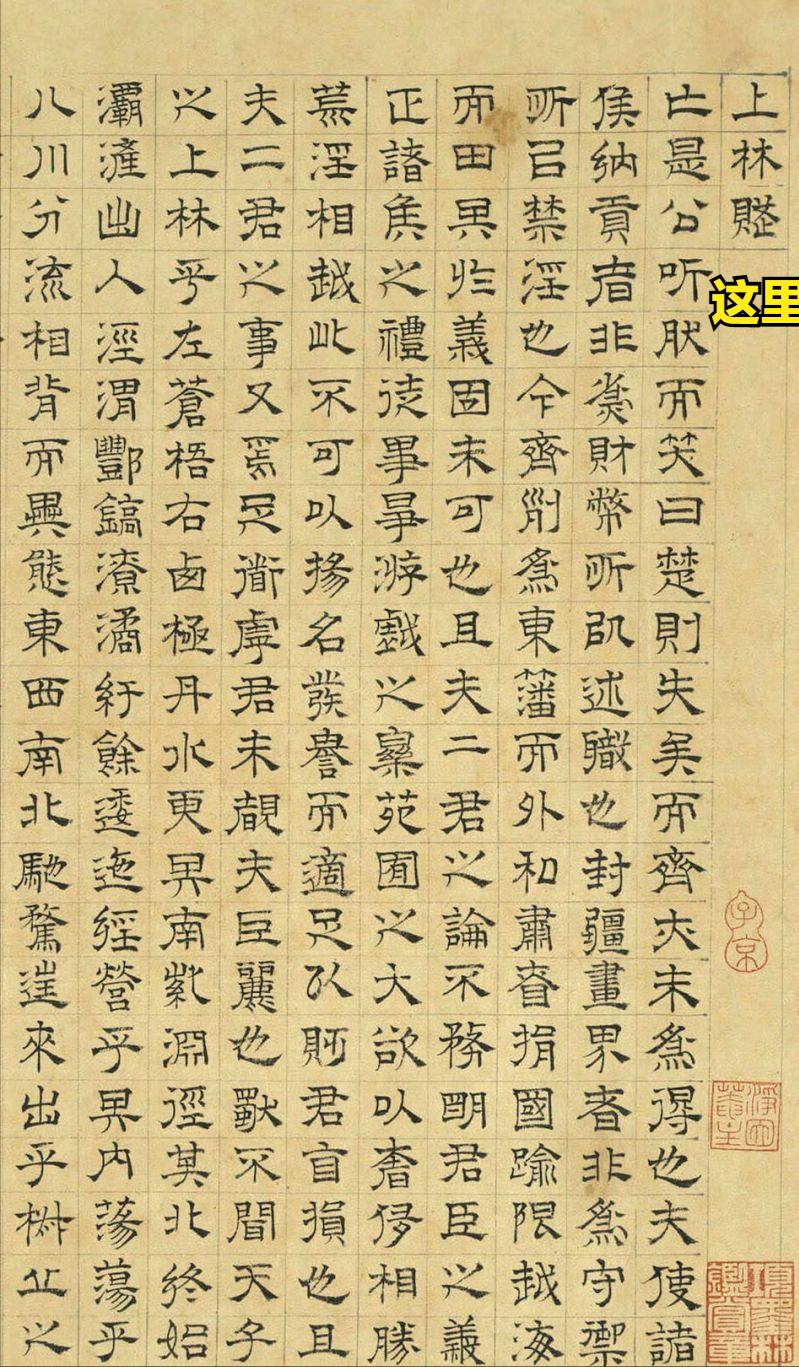 上林賦
亡是公听肰而笑曰楚則失矣而齊亦未爲得也夫使諸
侯納貢者非爲財幣所㠯述職也封疆畫界者非爲守禦
所㠯禁淫也今齊列爲東藩而外和肅眘捐國踰限越海
而田其於義固未可也且夫二君之論不務明君臣之義
正諸矦之禮徒事爭游戲之樂苑囿之大欲以奢侈相勝
荒淫相越此不可以揚名發譽而適足以貶君自損也且
夫二君之事又焉足道虖君未覩夫巨麗也獨不聞天子
之上林乎左蒼梧右西極丹水更其南紫淵徑其北終始
灞滻出入涇渭酆鎬潦潏紆餘逶迤經營乎其內蕩蕩乎
八川分流相背而異態東西南北馳騖往來出乎椒丘之
这里
子京